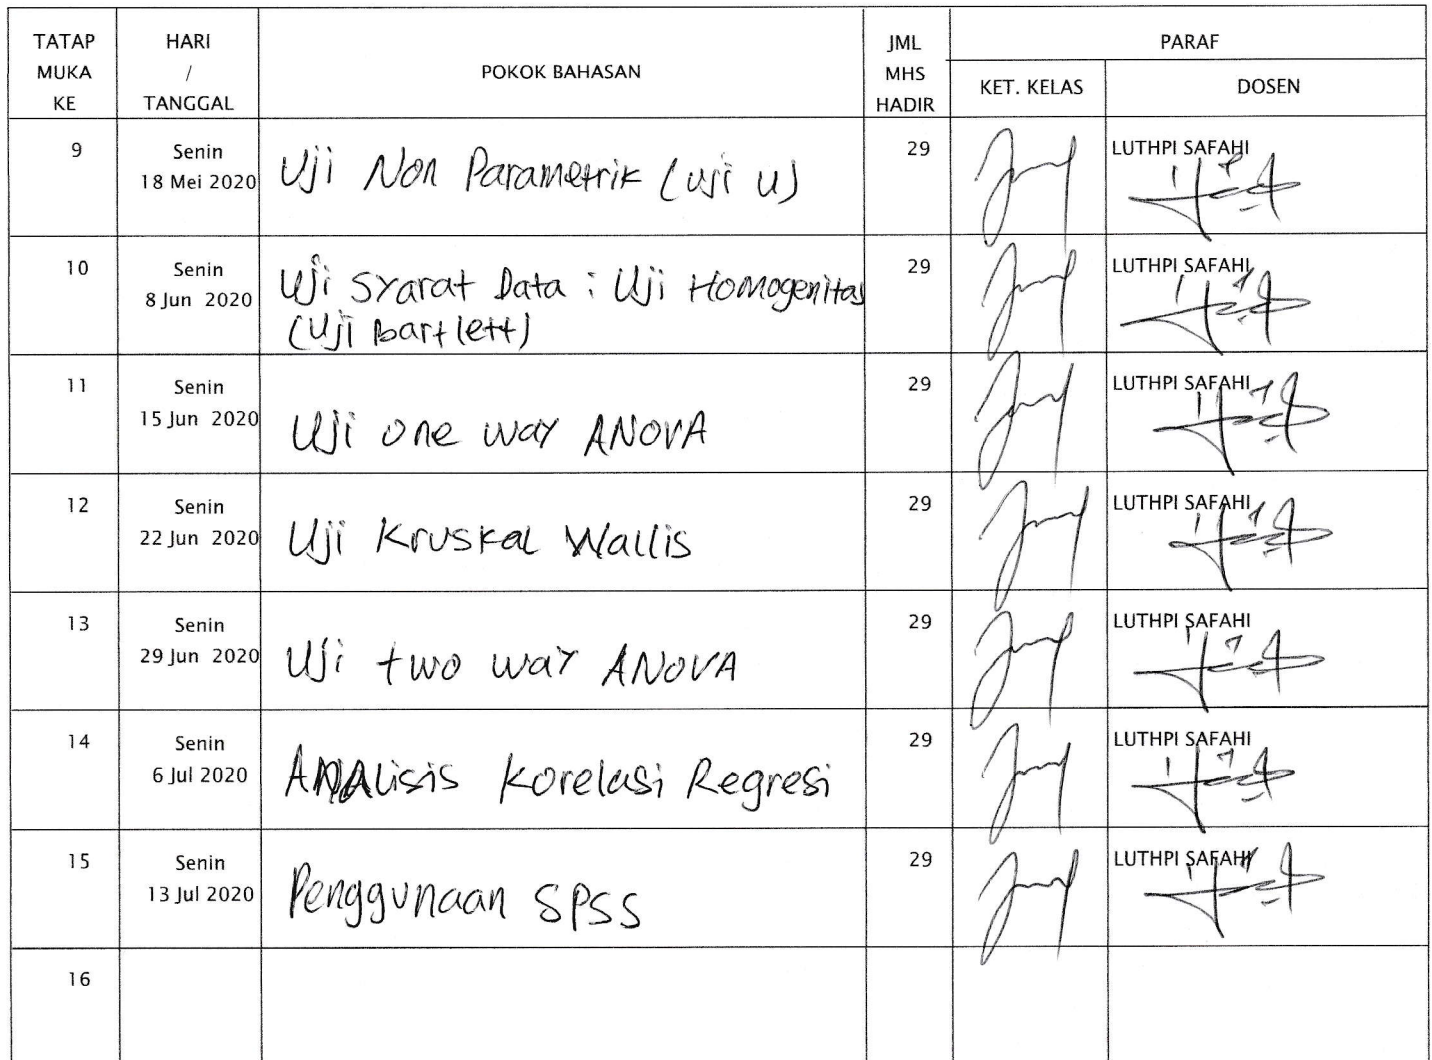 TATAP MUKA KE
HARI / TANGGAL
POKOK BAHASAN
JML MHS HADIR
PARAF
KET. KELAS
DOSEN
9
Senin
18 Mei 2020
Uji Non Parametrik (uji u)
29
LUTHPI SAFAHI
10
Senin
8 Jun 2020
Uji Syarat Data : Uji Homogenitas
(Uji Bartlett)
29
LUTHPI SAFAHI
11
Senin
15 Jun 2020
Uji one way ANOVA
29
LUTHPI SAFAHI
12
Senin
22 Jun 2020
Uji Kruskal Wallis
29
LUTHPI SAFAHI
13
Senin
29 Jun 2020
Uji two way ANOVA
29
LUTHPI SAFAHI
14
Senin
6 Jul 2020
Analisis Korelasi Regresi
29
LUTHPI SAFAHI
15
Senin
13 Jul 2020
Penggunaan SPSS
29
LUTHPI SAFAHI
16